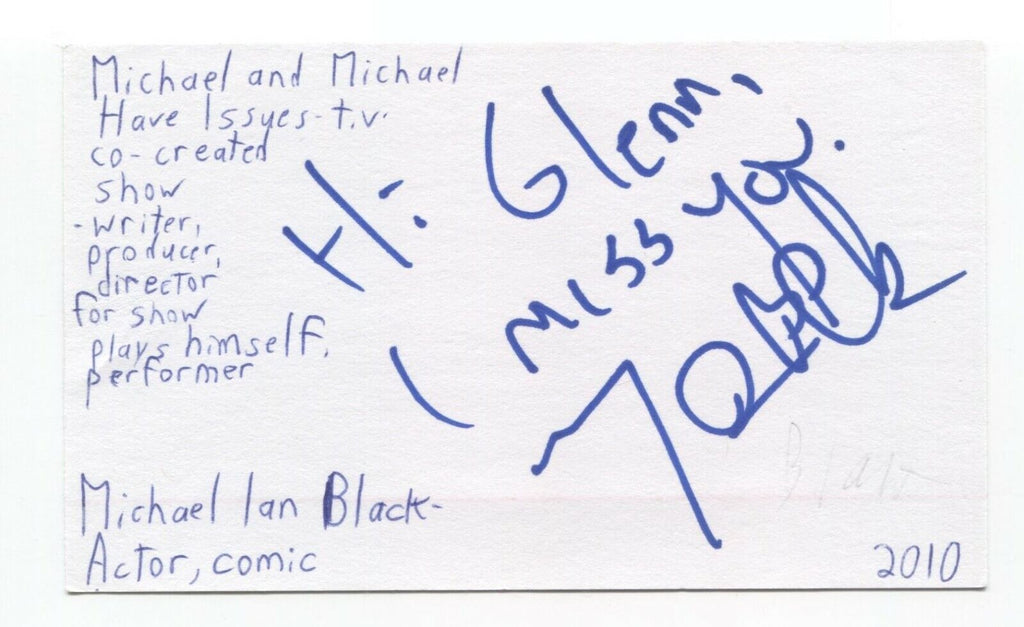 Michael and Michael
Have Issyes-t.v.
co-created
show
-writer,
producer,
director
for show
plays himself,
performer
Michael Ian Black-
Actor, comic
Hi Glenn,
I miss you.
2010